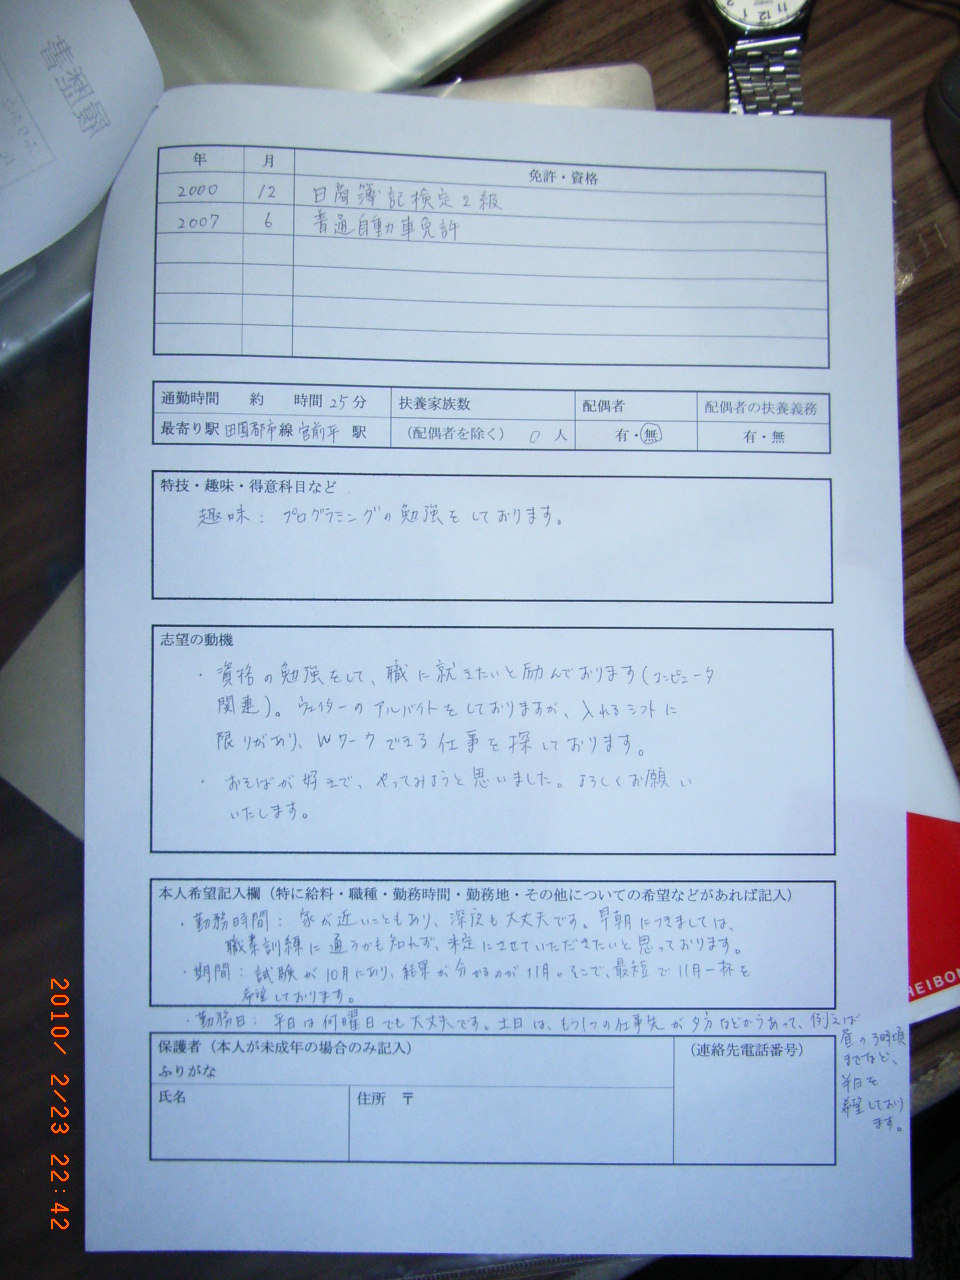 年 月 免許・資格
2000 12 日商簿記検定2級
2007 6 普通自動車免許
通勤時間 約 時間 25 分 扶養家族数 配偶者 配偶者の扶養義務
最寄り駅 田園都市線 宮前平 駅 (配偶者を除く) 0 人 有・無 有・無
特技・趣味・得意科目など
趣味：プログラミングの勉強をしております。
志望の動機
・資格の勉強をして、職に就きたいと励んでおります(コンピュータ
関連)。ウェイターのアルバイトをしておりますが、入れるシフトに
限りがあり、Wワークできる仕事を探しております。
・おそばが好きで、やってみようと思いました。よろしくお願い
いたします。
本人希望記入欄（特に給料・職種・勤務時間・勤務地・その他についての希望などがあれば記入）
・勤務時間：家が近いこともあり、深夜も大丈夫です。早朝につきましては、
職業訓練に通うかも知れず、未定にさせていただきたいと思っております。
・期間：試験が10月にあり、結果が分かるのが11月。そこで、最短で11月一杯を
希望しております。
・勤務日：平日は何曜日でも大丈夫です。土日は、もう1つの仕事先が夕方などからあって、例えば
昼の3時頃
までなど、
半日を
希望しており
ます。
保護者（本人が未成年の場合のみ記入） （連絡先電話番号）
ふりがな
氏名 住所 〒
HEIBON
2010/ 2/23 22:42